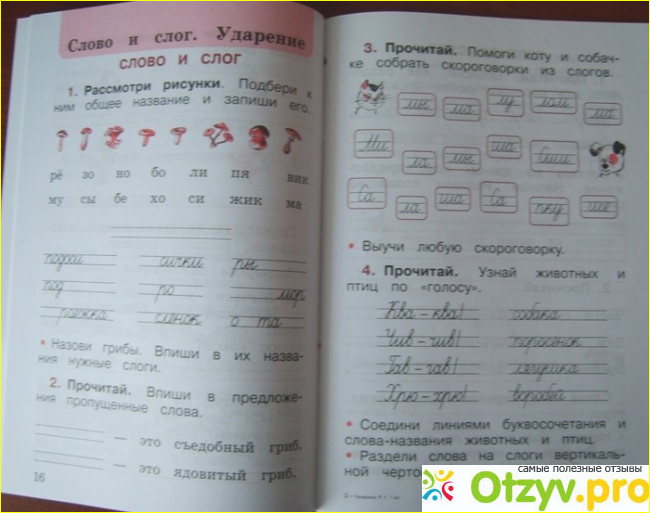 Слово и слог. Ударение
СЛОВО И СЛОГ
1. Рассмотри рисунки. Подбери к
ним общее название и запиши его.
рё зо но бо ли пя вик
му сы бе хо си жик ма
подоси ички ры
под ро мор
роежка слёнок о та
• Назови грибы. Впиши в их назва-
ния нужные слоги.
2. Прочитай. Впиши в предложе-
ния пропущенные слова.
— это съедобный гриб.
— это ядовитый гриб.
16
3. Прочитай. Помоги коту и собач-
ке собрать скороговорки из слогов.
мы ма лу
Ми ла мы ша
Са ла ша Са пку ше
• Выучи любую скороговорку.
4. Прочитай. Узнай животных и
птиц по «голосу».
Ква – ква! собака
Чив – чив! поросёнок
Гав – гав! лягушка
Хрю – хрю! воробей
• Соедини линиями буквосочетания и
слова-названия животных и птиц.
• Раздели слова на слоги вертикаль-
ной черто
самые полезные отзывы
Otzyv.pro